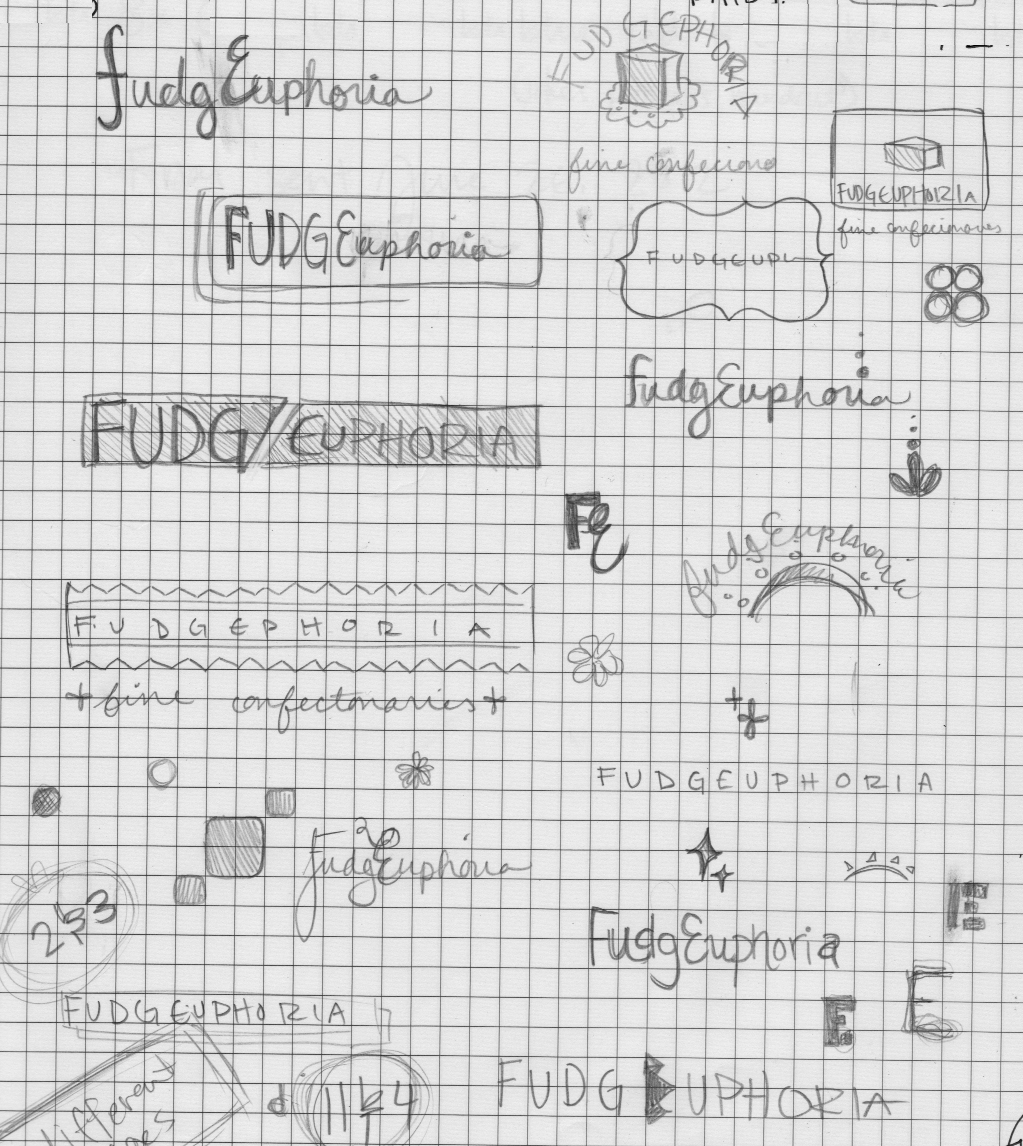 FUDGEPHORIA
fudgEuphoria
fine confeciono
FUDGEUPHORIA
fine confecionaves
FUDGEuphoria
FUDGEUPL
fudgEuphoria
FUDG//EUPHORIA
FE
fudgEuphoria
FUDGEPHORIA
+fine confectonaries+
FUDGEUPHORIA
FudgEuphoria
E
2 3
FudgEuphoria
E
E
FUDGEUPHORIA
different
FUDG EUPHORIA